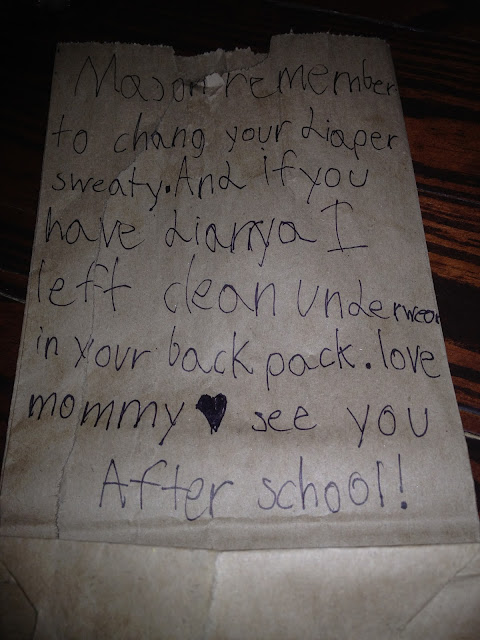 Mason remember
to chang your diaper
sweaty. And if you
have diarrya I
left clean underwear
in your back pack. love
mommy ♥ see you
After school!